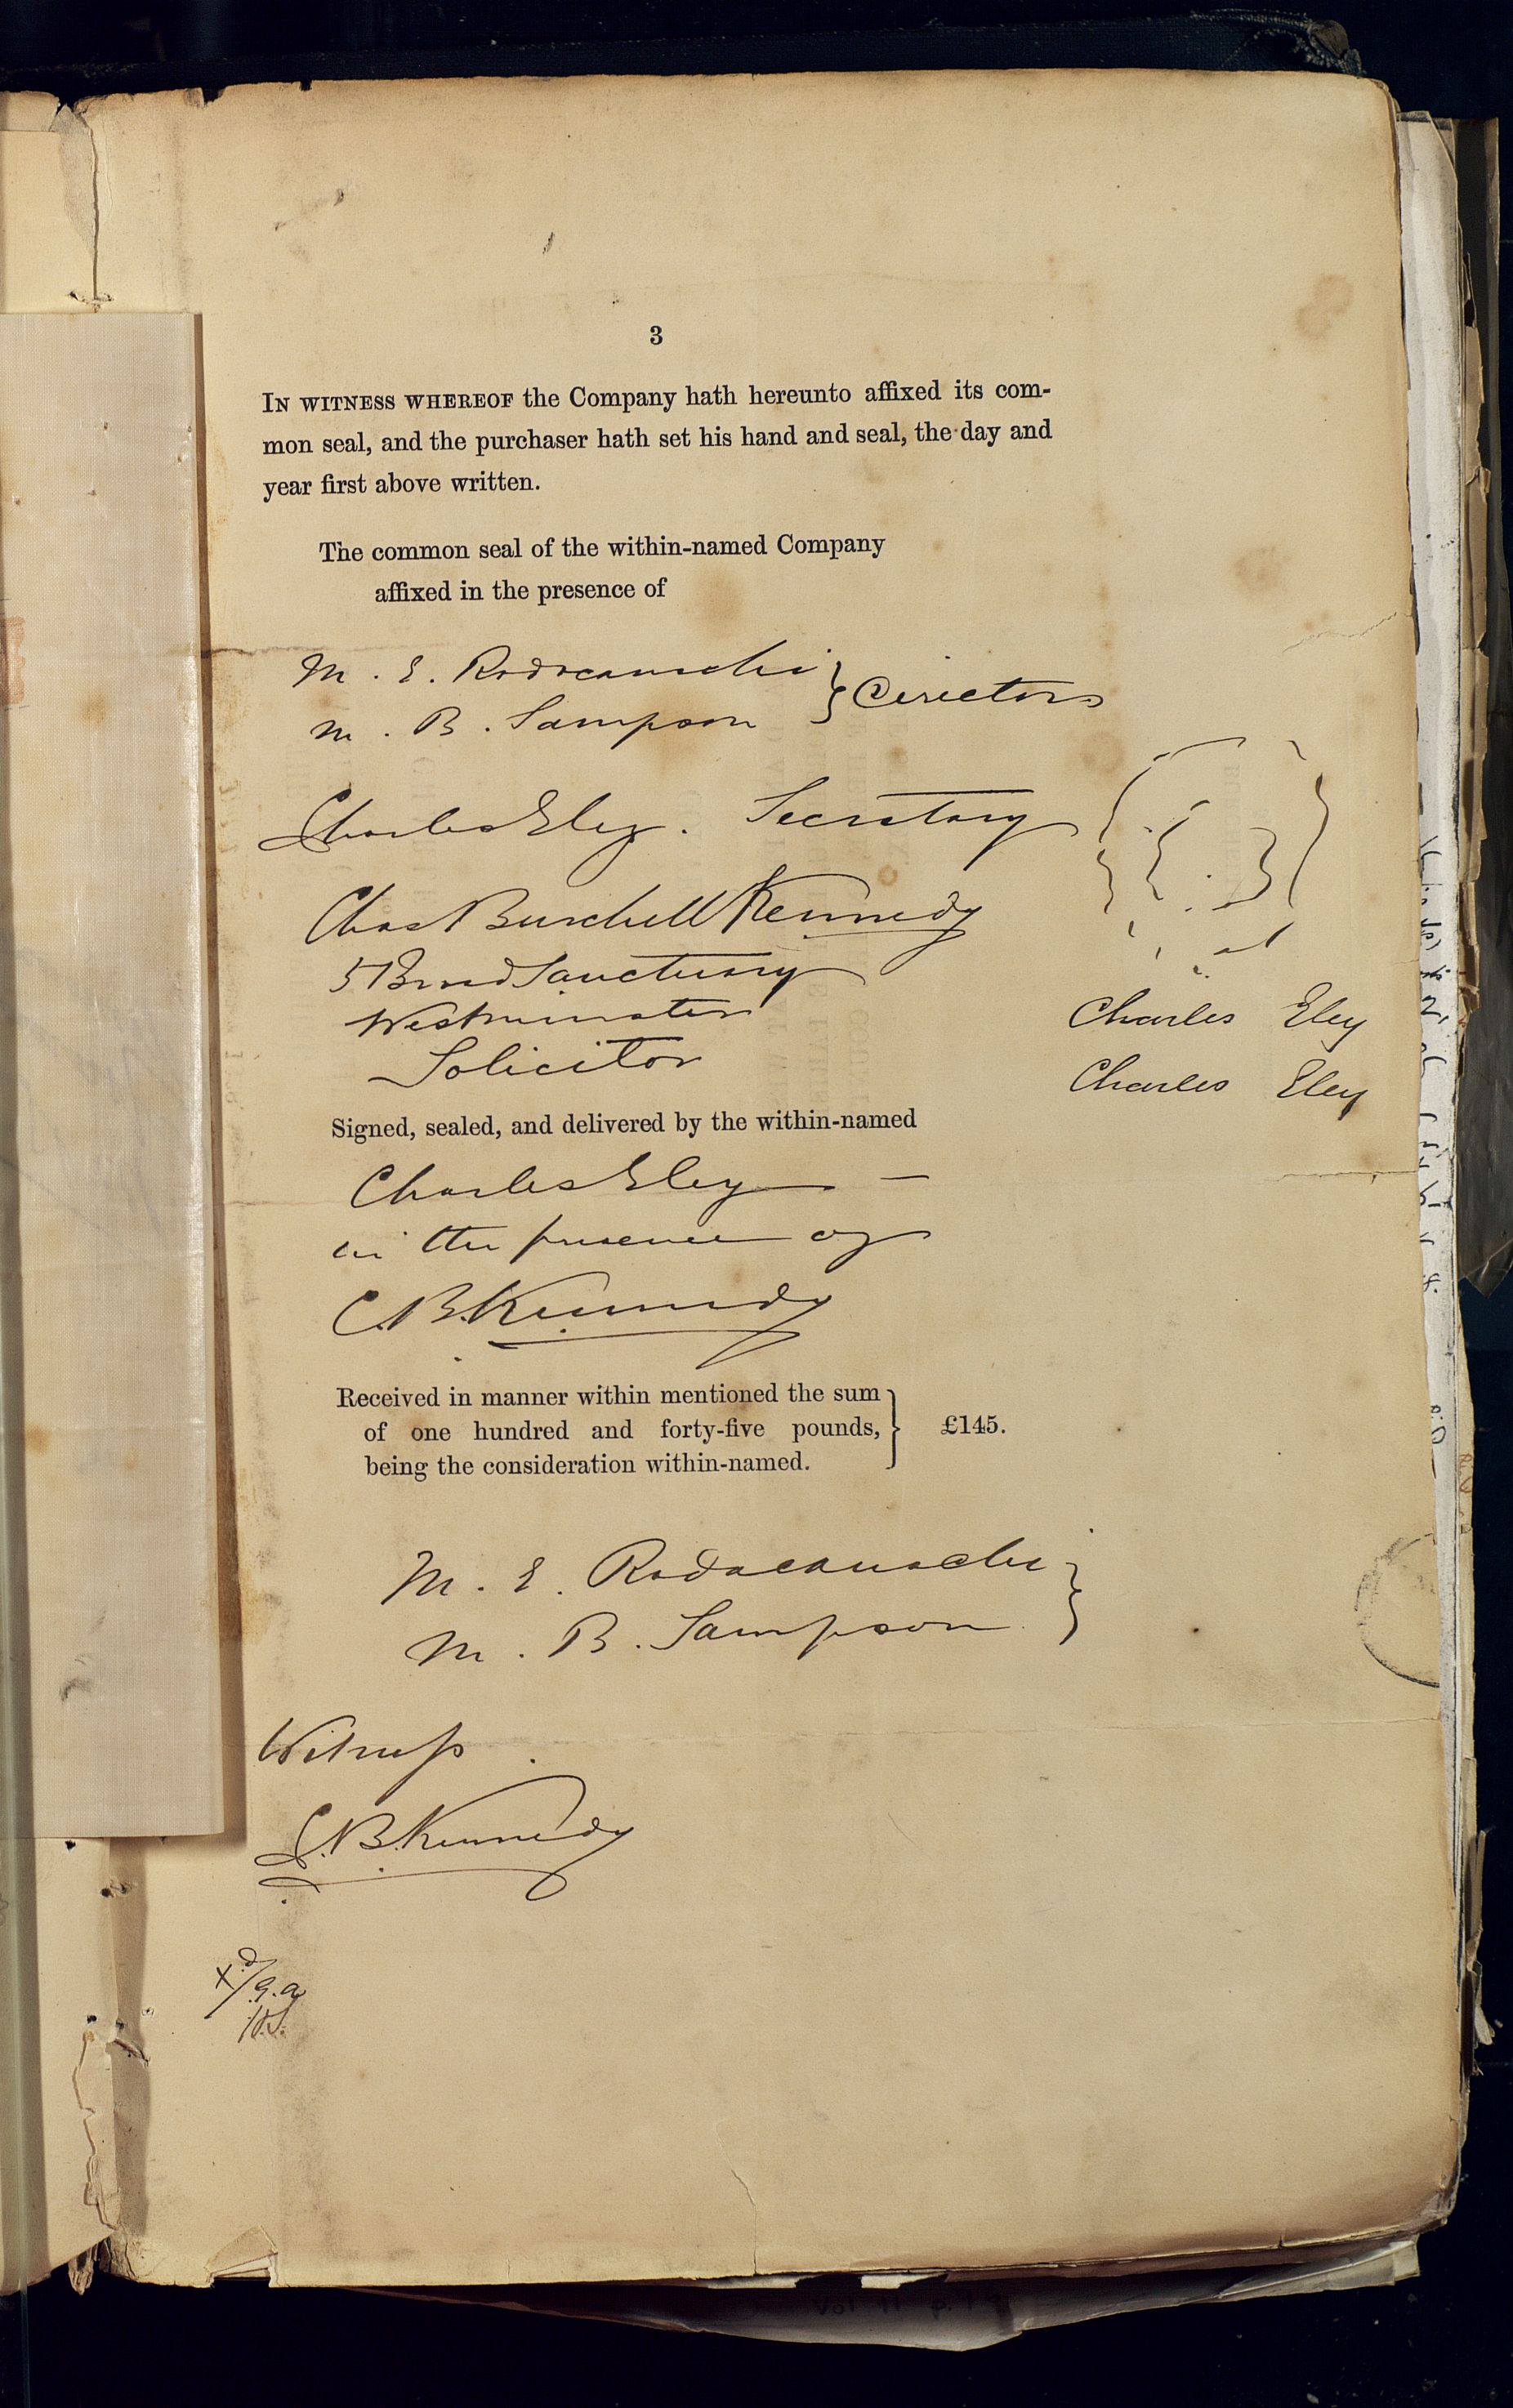 3
IN WITNESS WHEREOF the Company hath hereunto affixed its com-
mon seal, and the purchaser hath set his hand and seal, the day and
year first above written.
The common seal of the within-named Company
affixed in the presence of
M. E. Rodocanachi
M. B. Sampson } Directors
Charles Eley. Secretary
Chas Burchell Kennedy
5 Broad Sanctuary
Westminster
Solicitor
Charles Eley
Charles Eley
Signed, sealed, and delivered by the within-named
Charles Eley —
in the presence of
C.B. Kennedy
Received in manner within mentioned the sum
of one hundred and forty-five pounds, } £145.
being the consideration within-named.
M. E. Rodocanachi
M. B. Sampson }
Witness
C.B. Kennedy